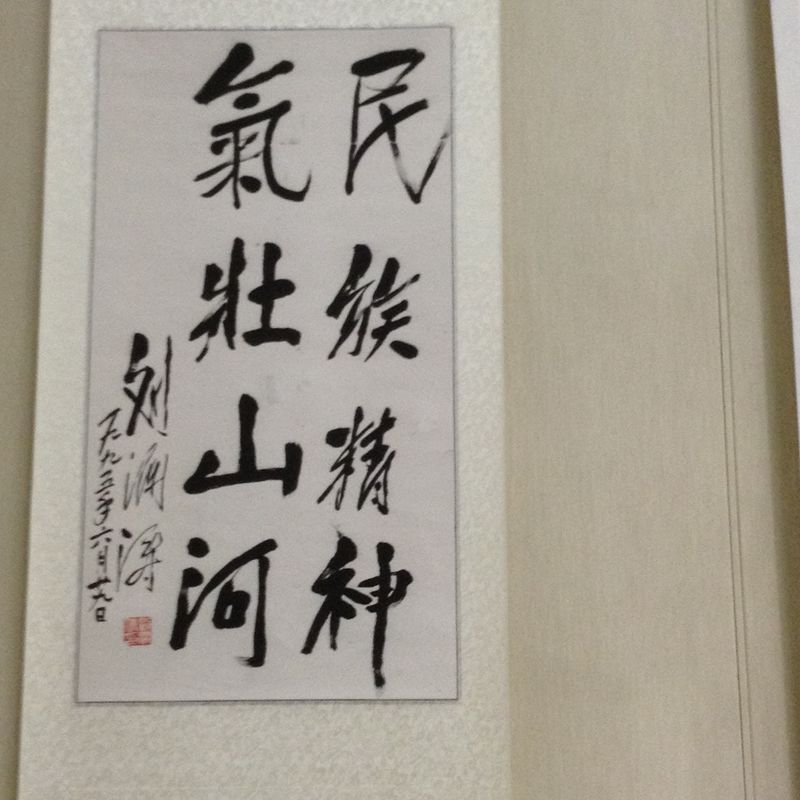 民族精神
氣壯山河
刘澜涛
六月廿九日